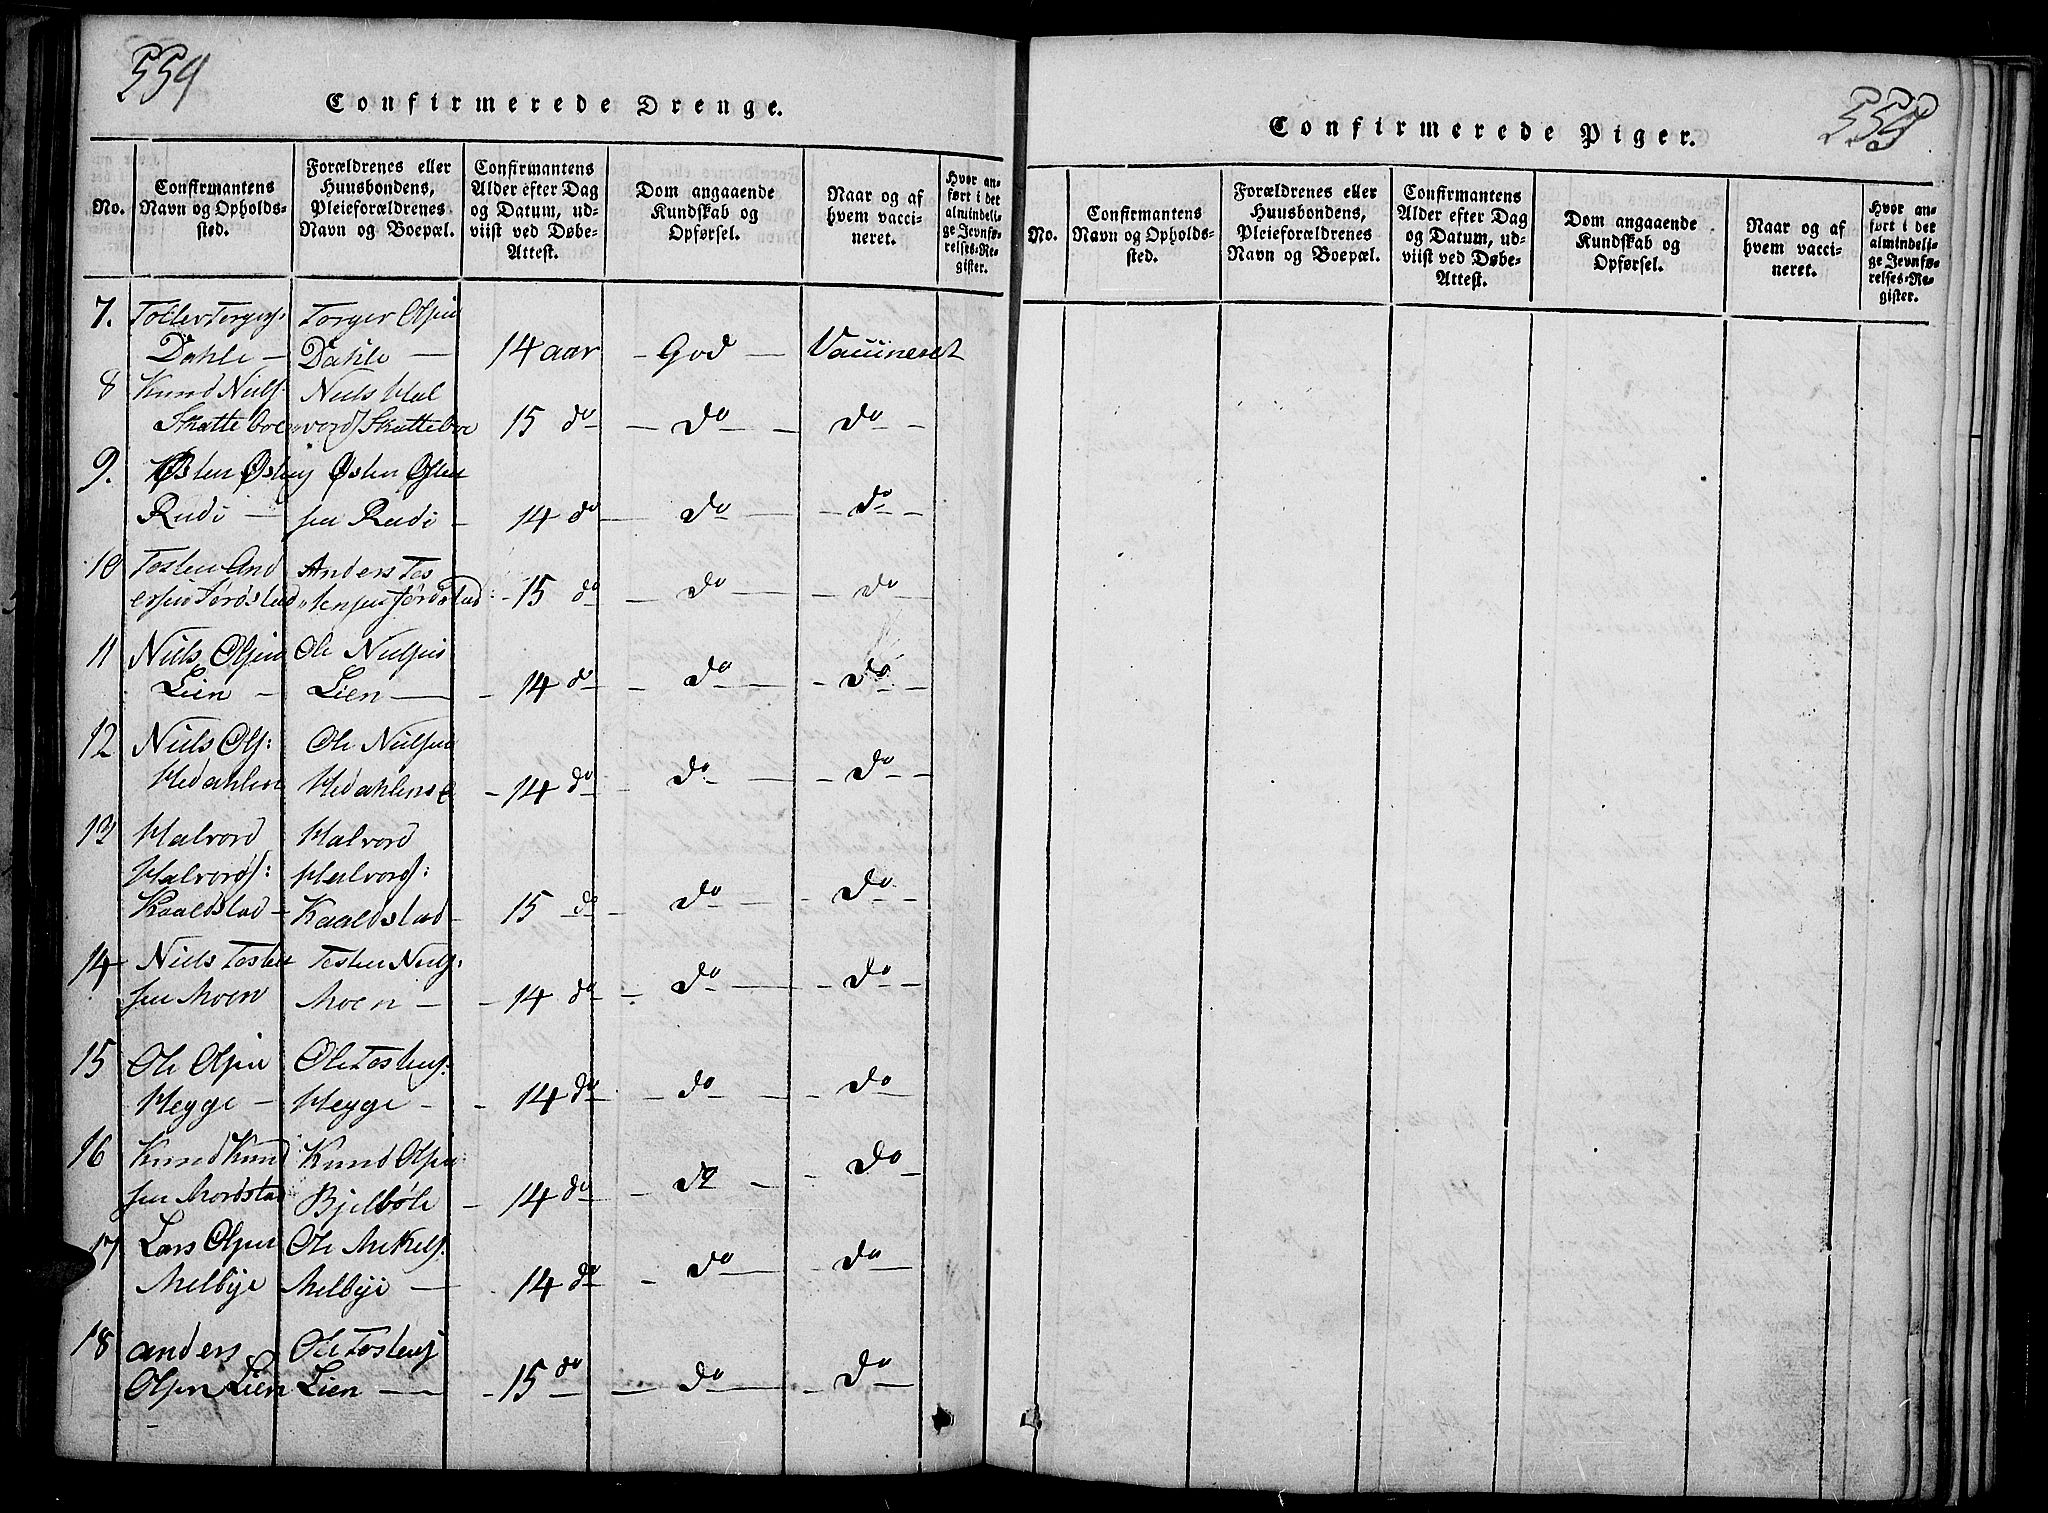 554
Confirmerede Drenge.
No.
Confirmantens Navn og Opholds-sted.
Forældrenes eller Huusbondens, Pleieforældrenes Navn og Boepæl.
Confirmantens Alder efter Dag og Datum, ud-viist ved Døbe-Attest.
Dom angaaende Kundskab og Opførsel.
Naar og af hvem vacci-neret.
Hvor an-ført i det almindeli-ge Jevnfø-relses-Re-gister.
7. Torger Olsen
Dahle — Dahle — 14 aar — God — Vaccineret
8 Knud Niels: Niels Hal
Skatteboe vord/ Skatteboe 15 do — do — do —
9. Østen Østens Østen Østen
Rudi — sen Rudi — 14 do — do — do —
10 Tosten And Anders Tos
ersen Jørdstad tensen Jørdstad - 15 do — do — do —
11 Niels Olsen Ole Nielsen
Lien — Lien — 14 do — do — do —
12 Niels Ols: Ole Nielsen
Hedahlen Hedahlense - 14 do — do — do —
13 Halvord Halvord
Halvords: Halvords:
Kaaldstad - Kaaldstad - 15 do — do — do —
14 Niels Tosten Tosten Niels:
sen Moen Moen — 14 do — do — do —
15 Ole Olsen Ole Tostens:
Hegge — Hegge - 14 do — do — do —
16 Knud Knud Knud Olsen
sen Mordstad Bjelbøle — 14 do — do — do —
17 Lars Olsen Ole Mekels:
Melbye Melbye — 14 do — do — do —
18 Anders Ole Tostens
Olsen Lien Lien — 15 do — do — do —
555
Confirmerede Piger.
No.
Confirmantens Navn og Opholds-sted.
Forældrenes eller Huusbondens, Pleieforældrenes Navn og Boepæl.
Confirmantens Alder efter Dag og Datum, ud-viist ved Døbe-Attest.
Dom angaaende Kundskab og Opførsel.
Naar og af hvem vacci-neret.
Hvor an-ført i det almindeli-ge Jevnfø-relses-Re-gister.